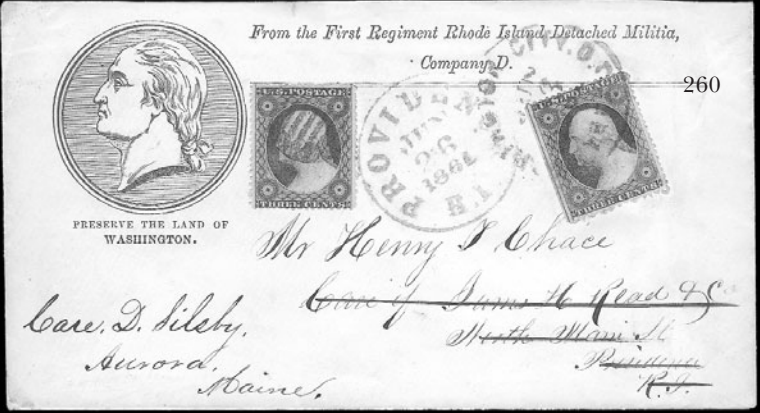 From the First Regiment Rhode Island Detached Militia,
Company D.
260
U.S. POSTAGE
THREE CENTS
PROVIDENCE R I
JUN
26
1861
U.S. POSTAGE
THREE CENTS
PRESERVE THE LAND OF
WASHINGTON.
Mr Henry J Chace
Care of James H Read & Co
North Main St
Providence
R.I.
Care. D. Silsby.
Aurora.
Maine.